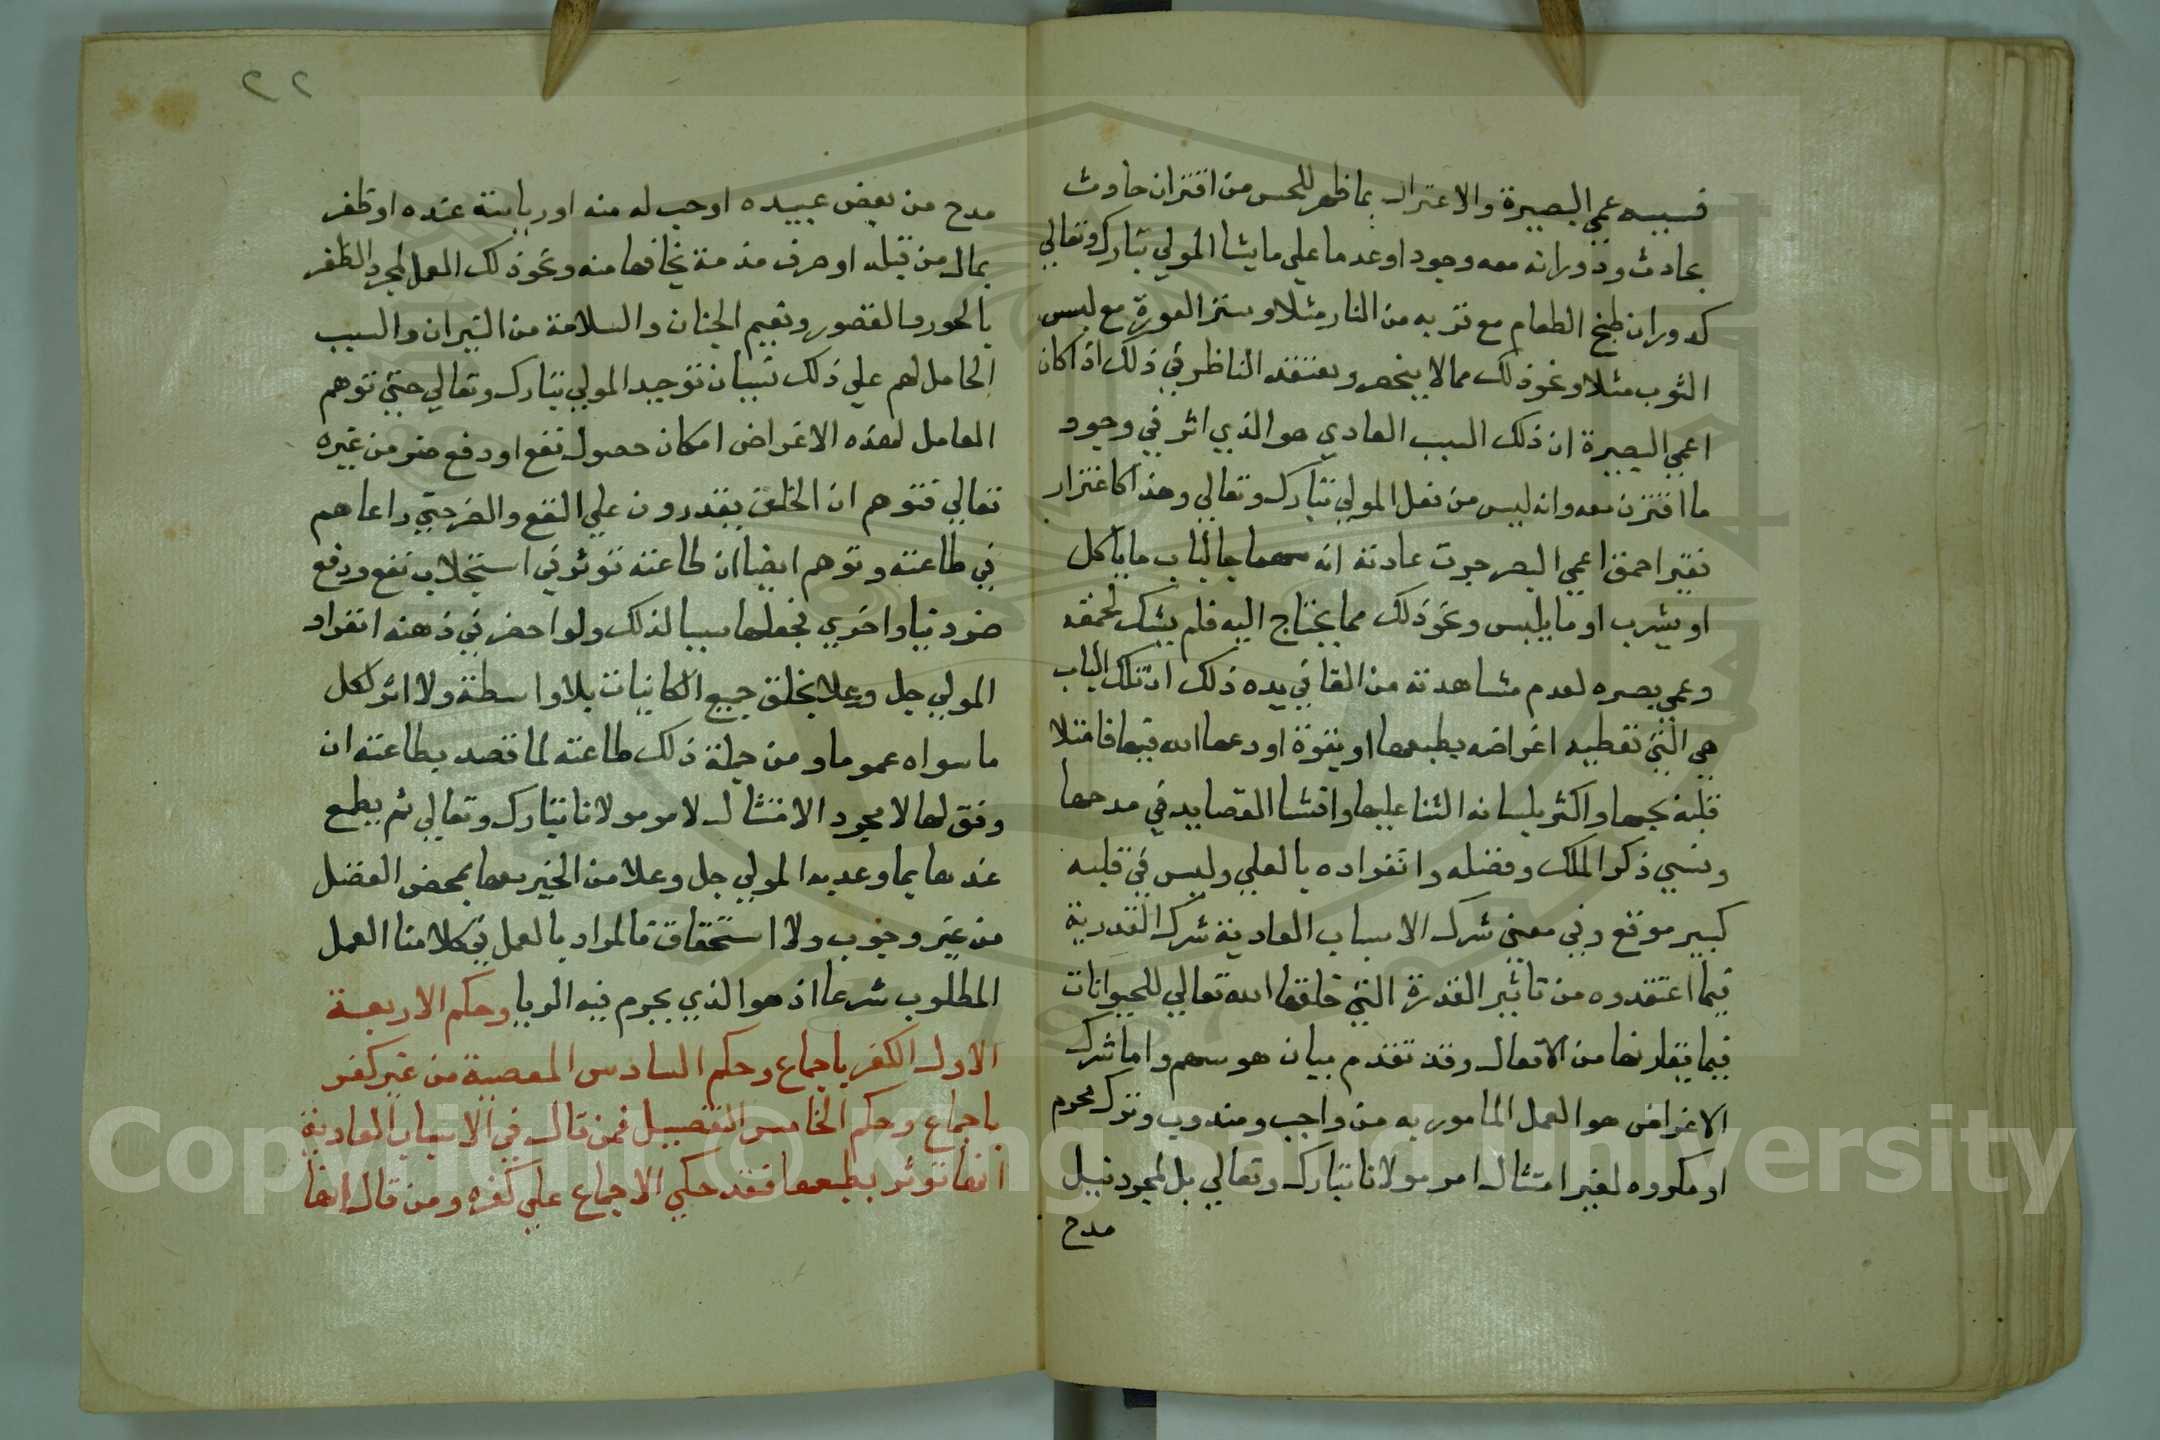 فسببه عمي البصيرة والاعترار بما ظهر للحس من اقتران حادث
بحادث ودورانه معه وجودا وعدما علي ما يشا المولي تبارك وتعالي
كدوران طبخ الطعام مع قربه من النار مثلا وستر العورة مع لبس
الثوب مثلا ونحو ذلك مما لا ينحصر ويعتقد الناظر في ذلك اذا كان
اعمي البصيرة ان ذلك السبب العادي هو الذي اثر في وجود
ما اقترن معه وانه ليس من فعل المولي تبارك وتعالي وهذا كاغترار
فقير احمق اعمي البصر جرت عادته انه مهما جا لباب ما ياكل
او يشرب او ما يلبس ونحو ذلك مما يحتاج اليه فلم يشك لحمقه
وعمي بصره لعدم مشاهدته من القا في يده ذلك ان تلك الباب
هي التي تعطيه اغراضه بطبعها او بقوة اودعها الله فيها فامتلا
قلبه بحبها واكثر بلسانه الثنا عليها وانشا القصايد في مدحها
ونسي ذكر الملك وفضله وانفراده بالعلي وليس في قلبه
كبير موقع وفي معني شرك الاسباب العادية شرك القدرية
فيما اعتقدوه من تاثير القدرة التي خلقها الله تعالي للحيوانات
فيما يقارنها من الافعال وقد تقدم بيان هوسهم واما شرك
الاغراض هو العمل المامور به من واجب ومندوب وترك محرم
او مكروه لغير امتثال امر مولانا تبارك وتعالي بل لمجرد نيل
مدح
٢٢
مدح من بعض عبيده اوجب له منه او رياسة عنده او ظفر
بمال من قبله او صرف مذمة يخافها منه ونحو ذلك العمل لمجرد الظفر
بالحور والقصور ونعيم الجنان والسلامة من النيران والسبب
الحامل لهم علي ذلك نسيان توحيد المولي تبارك وتعالي حتي توهم
العامل لهذه الاغراض امكان حصول نفع او دفع ضر من غيره
تعالي فتوهم ان الخلق يقدرون علي النفع والضر حتي راعاهم
في طاعته وتوهم ايضا ان طاعته توثر في استجلاب نفع ودفع
ضر دنيا واخري فجعلها سببا لذلك ولو احضر في ذهنه انفراد
المولي جل وعلا بخلق جميع الكاينات بلا واسطة ولا اثر لكل
ما سواه عموما ومن جملة ذلك طاعته لما قصد بطاعته ان
وفق لها الا مجرد الامتثال لامر مولانا تبارك وتعالي ثم يطمع
عندها بما وعد به المولي جل وعلا من الخير معها بمحض الفضل
من غير وجوب ولا استحقاق فالمراد بالعمل في كلامنا العمل
المطلوب شرعا اذ هو الذي يحرم فيه الريا وحكم الاربعة
الاول الكفر باجماع وحكم السادس المعصية من غير كفر
باجماع وحكم الخامس التفصيل فمن قال في الاسباب العادية
انها توثر بطبعها فقد حكي الاجماع علي كفره ومن قال انها
Copyright © King Saud University